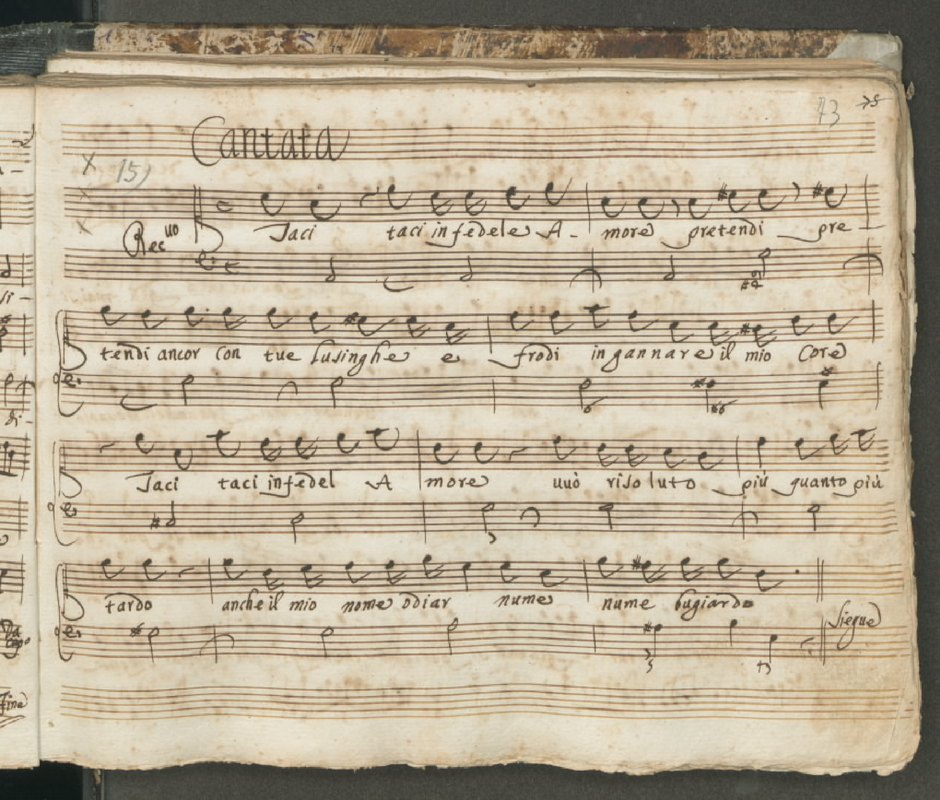 43
Cantata
15)
Rec.uo Taci taci infedele A- more pretendi pre-
tendi ancor con tue lusinghe e frodi ingannare il mio Core
Taci taci infedel A more uuò risoluto più quanto più
tardo anche il mio nome odiar nume nume bugiardo
Siegue
Da Capo
Fine